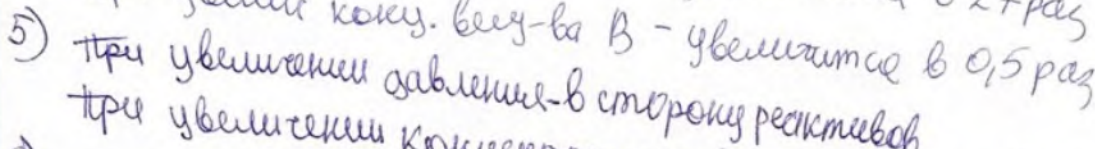 конц. вещ-ва В - увеличится в 0,5 раз
5) При увеличении давления-в сторону реактивов
При увеличении